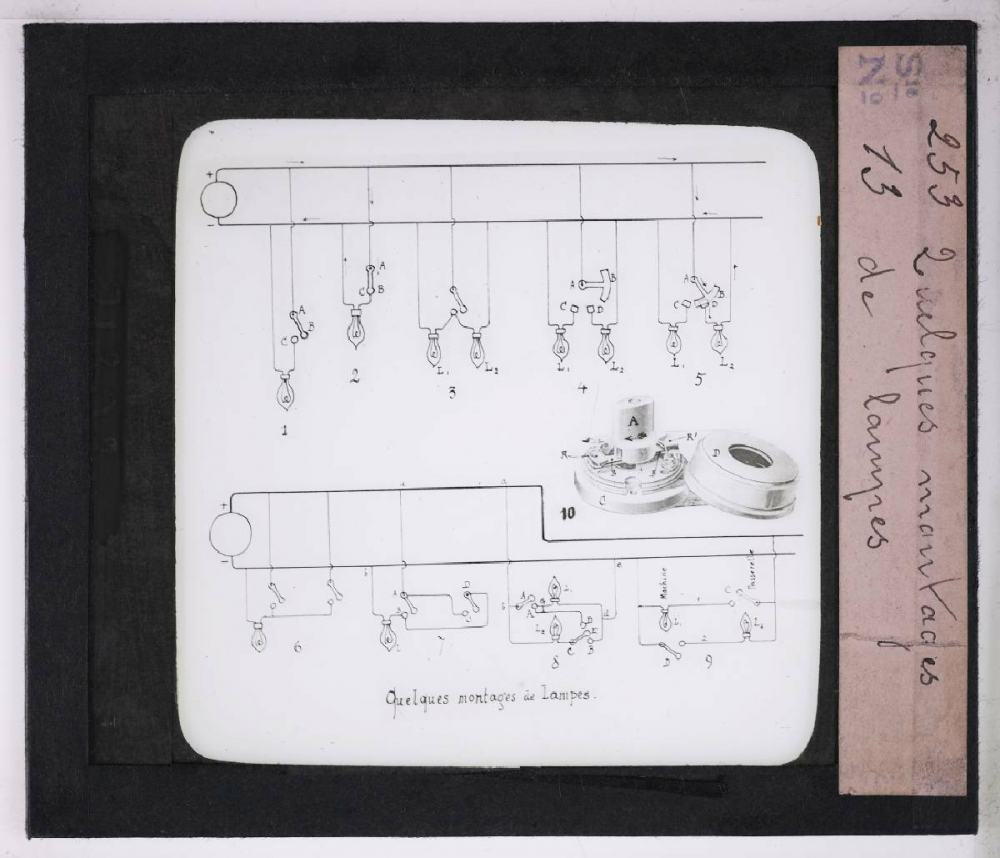 Sie 253 Quelques montages
No 13 de lampes
+
-
A
B
C
1
A
C B
2
L1 L2
3
A B
C D
L1 L2
4
A
B
C D
L1 L2
5
A
R R'
B
C
D
10
+
-
6
A D
B
L
7
A
L1
L2
D
E
C B
8
Machine
Passerelle
C
1
L1 L2
2
D
9
Quelques montages de Lampes.